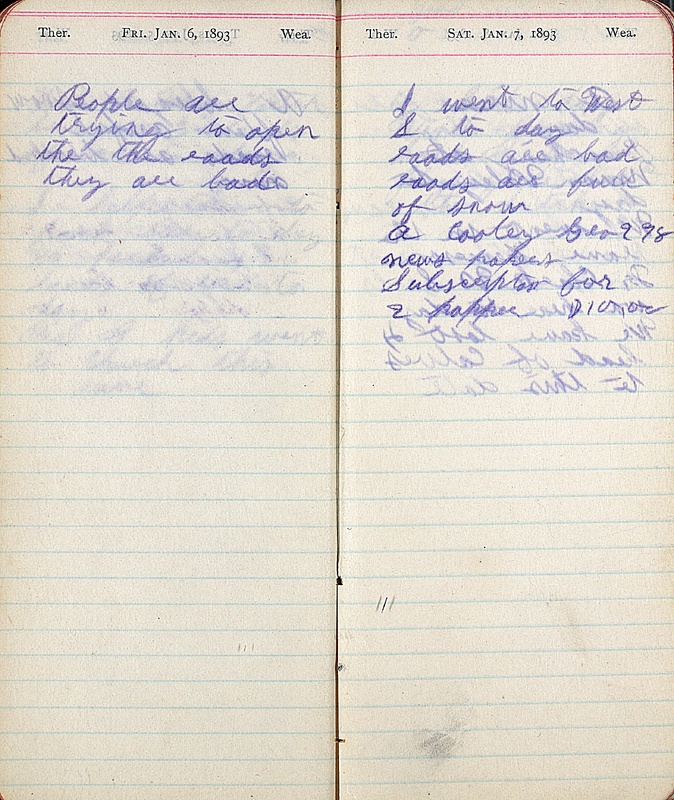 Ther. FRI. JAN. 6, 1893 Wea.
People are
trying to open
the the roads
they are bad
Ther. SAT. JAN. 7, 1893 Wea.
I went to West
S to day
roads are bad
roads are full
of snow
a Cooley Geo 2 98
news papers
Subscripton for
2 papper